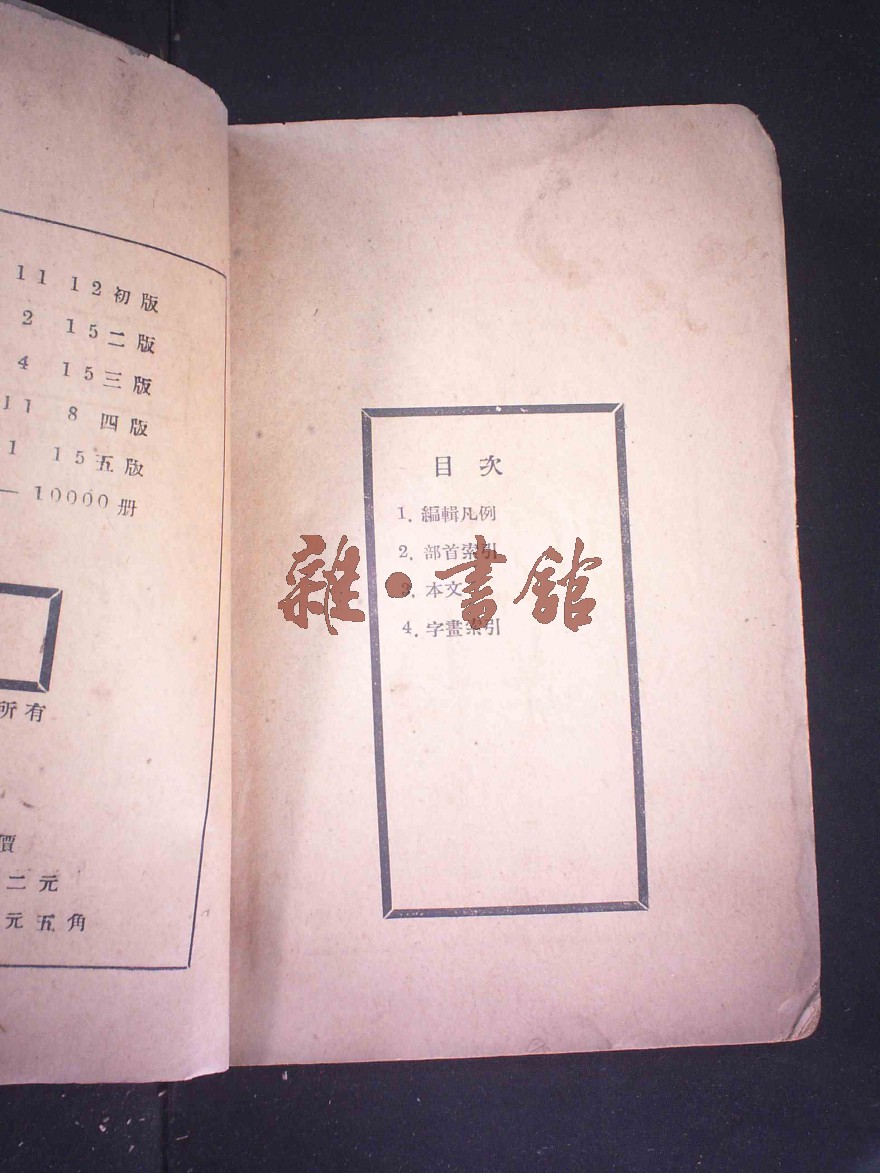 11 12初版
2 15二版
4 15三版
11 8四版
1 15五版
—10000册
所有
價
二元
元五角
目次
1. 編輯凡例
2. 部首索引
3. 本文
4. 字畫索引
雜·書館